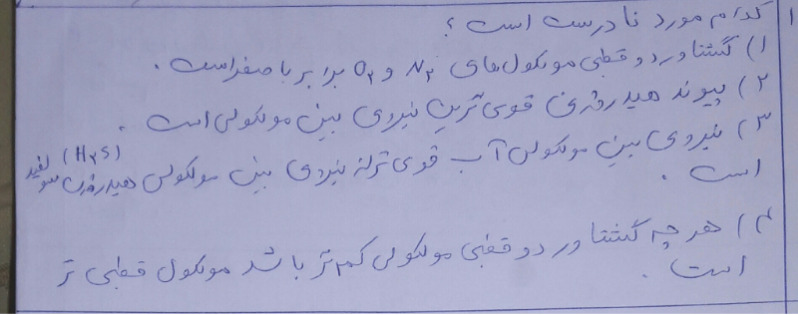 ۱ کدام مورد نادرست است ؟
۱) گشتاور دو قطبی مولکول‌های N۲ و O۲ برابر با صفر است .
۲) پیوند هیدروژنی قوی ترین نیروی بین مولکولی است .
۳) نیروی بین مولکولی آب قوی تر از نیروی بین مولکولی هیدروژن سولفید (H۲S)
است .
۴) هر چه گشتاور دو قطبی مولکولی کمتر باشد مولکول قطبی تر
است .